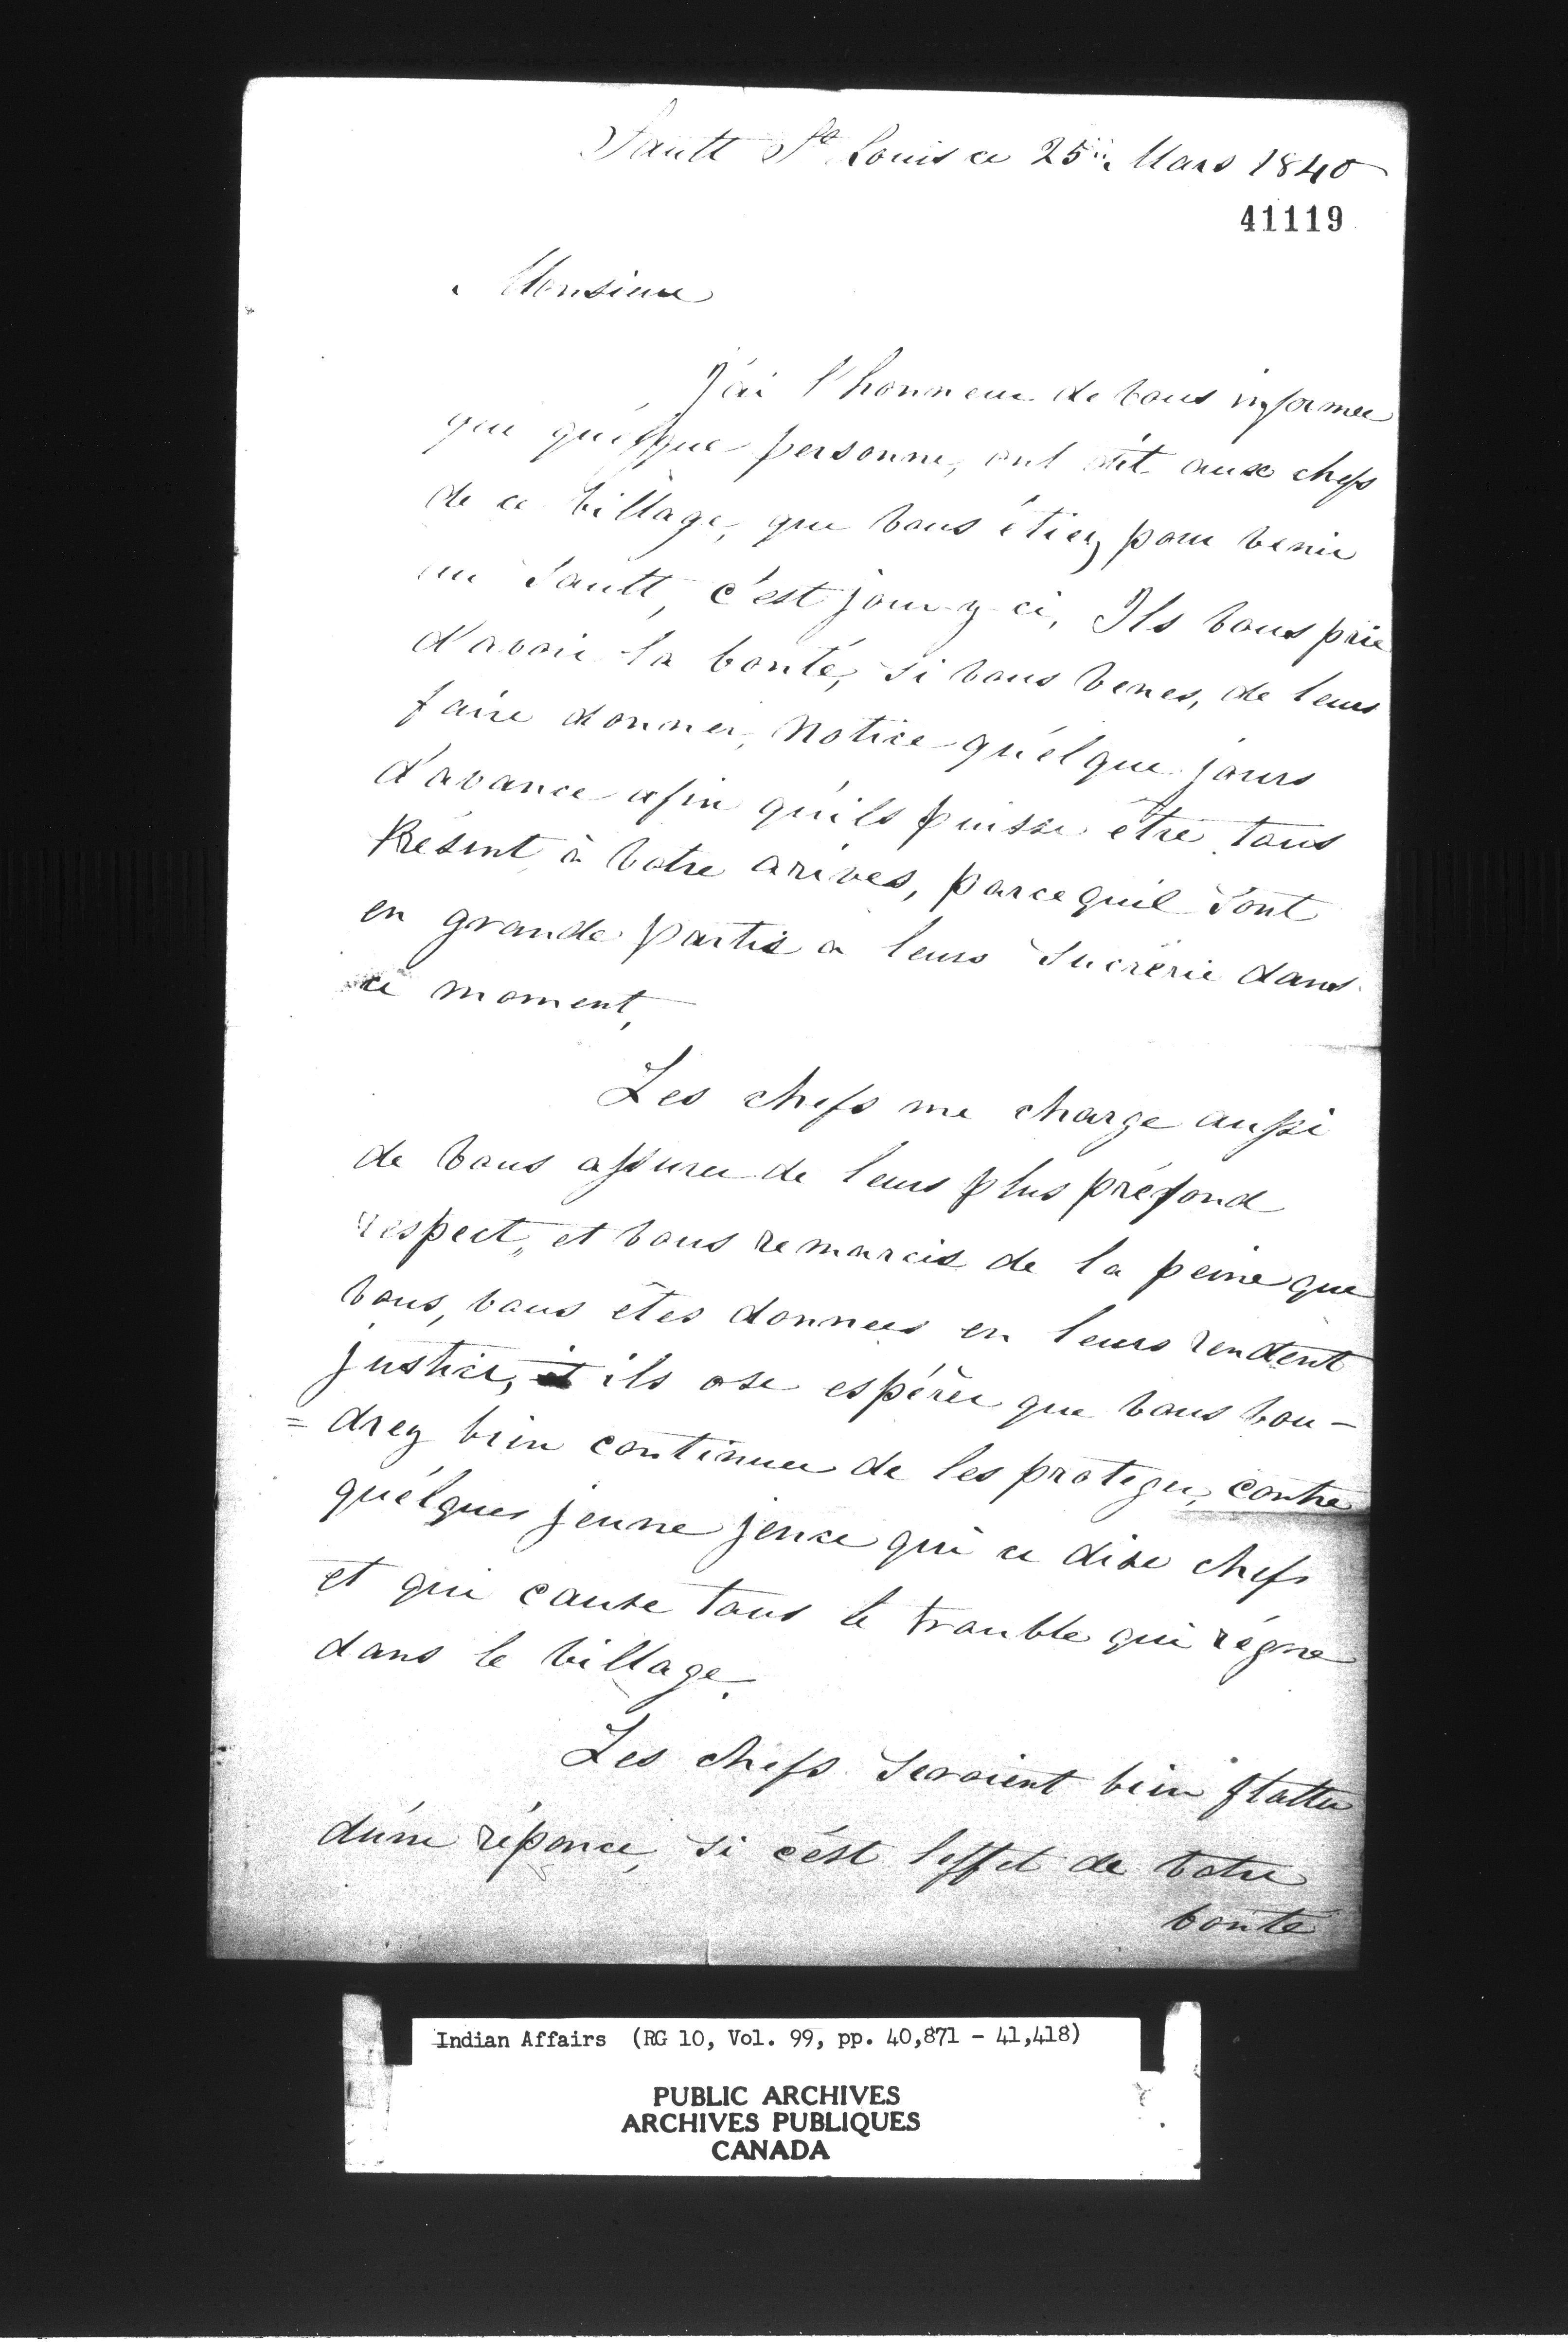 Sault St Louis ce 25me Mars 1840
41119
Monsieur
J'ai l'honneur de vous informer
que quélque personne, ont dit aux chefs
de ce village, que vous étiez pour venir
au Sault, c'est jour-y-ci, Ils vous prie
d'avoir la bonté, si vous venes, de leurs
faire donner, Notice quélque jours
d'avance afin qu'ils puisse être tous
Présent, à votre arives, parcequil sont
en grande partis a leurs Sucrérie dans
ce moment,
Les chefs me charge aussi
de vous assurer de leurs plus préfond
respect, et vous remarcis de la peine que
vous, vous êtes donnees en leurs rendent
justice, et ils ose espérer que vous vou-
=drez bien continuer de les proteger, contre
quélques jeune jence qui ce dise chefs
et qui cause tous le trouble qui régne
dans le village.
Les chefs seroient bien flatter
dúne réponce, si c'ést l'effet de votre
bonté
Indian Affairs (RG 10, Vol. 99, pp. 40,871 - 41,418)
PUBLIC ARCHIVES
ARCHIVES PUBLIQUES
CANADA